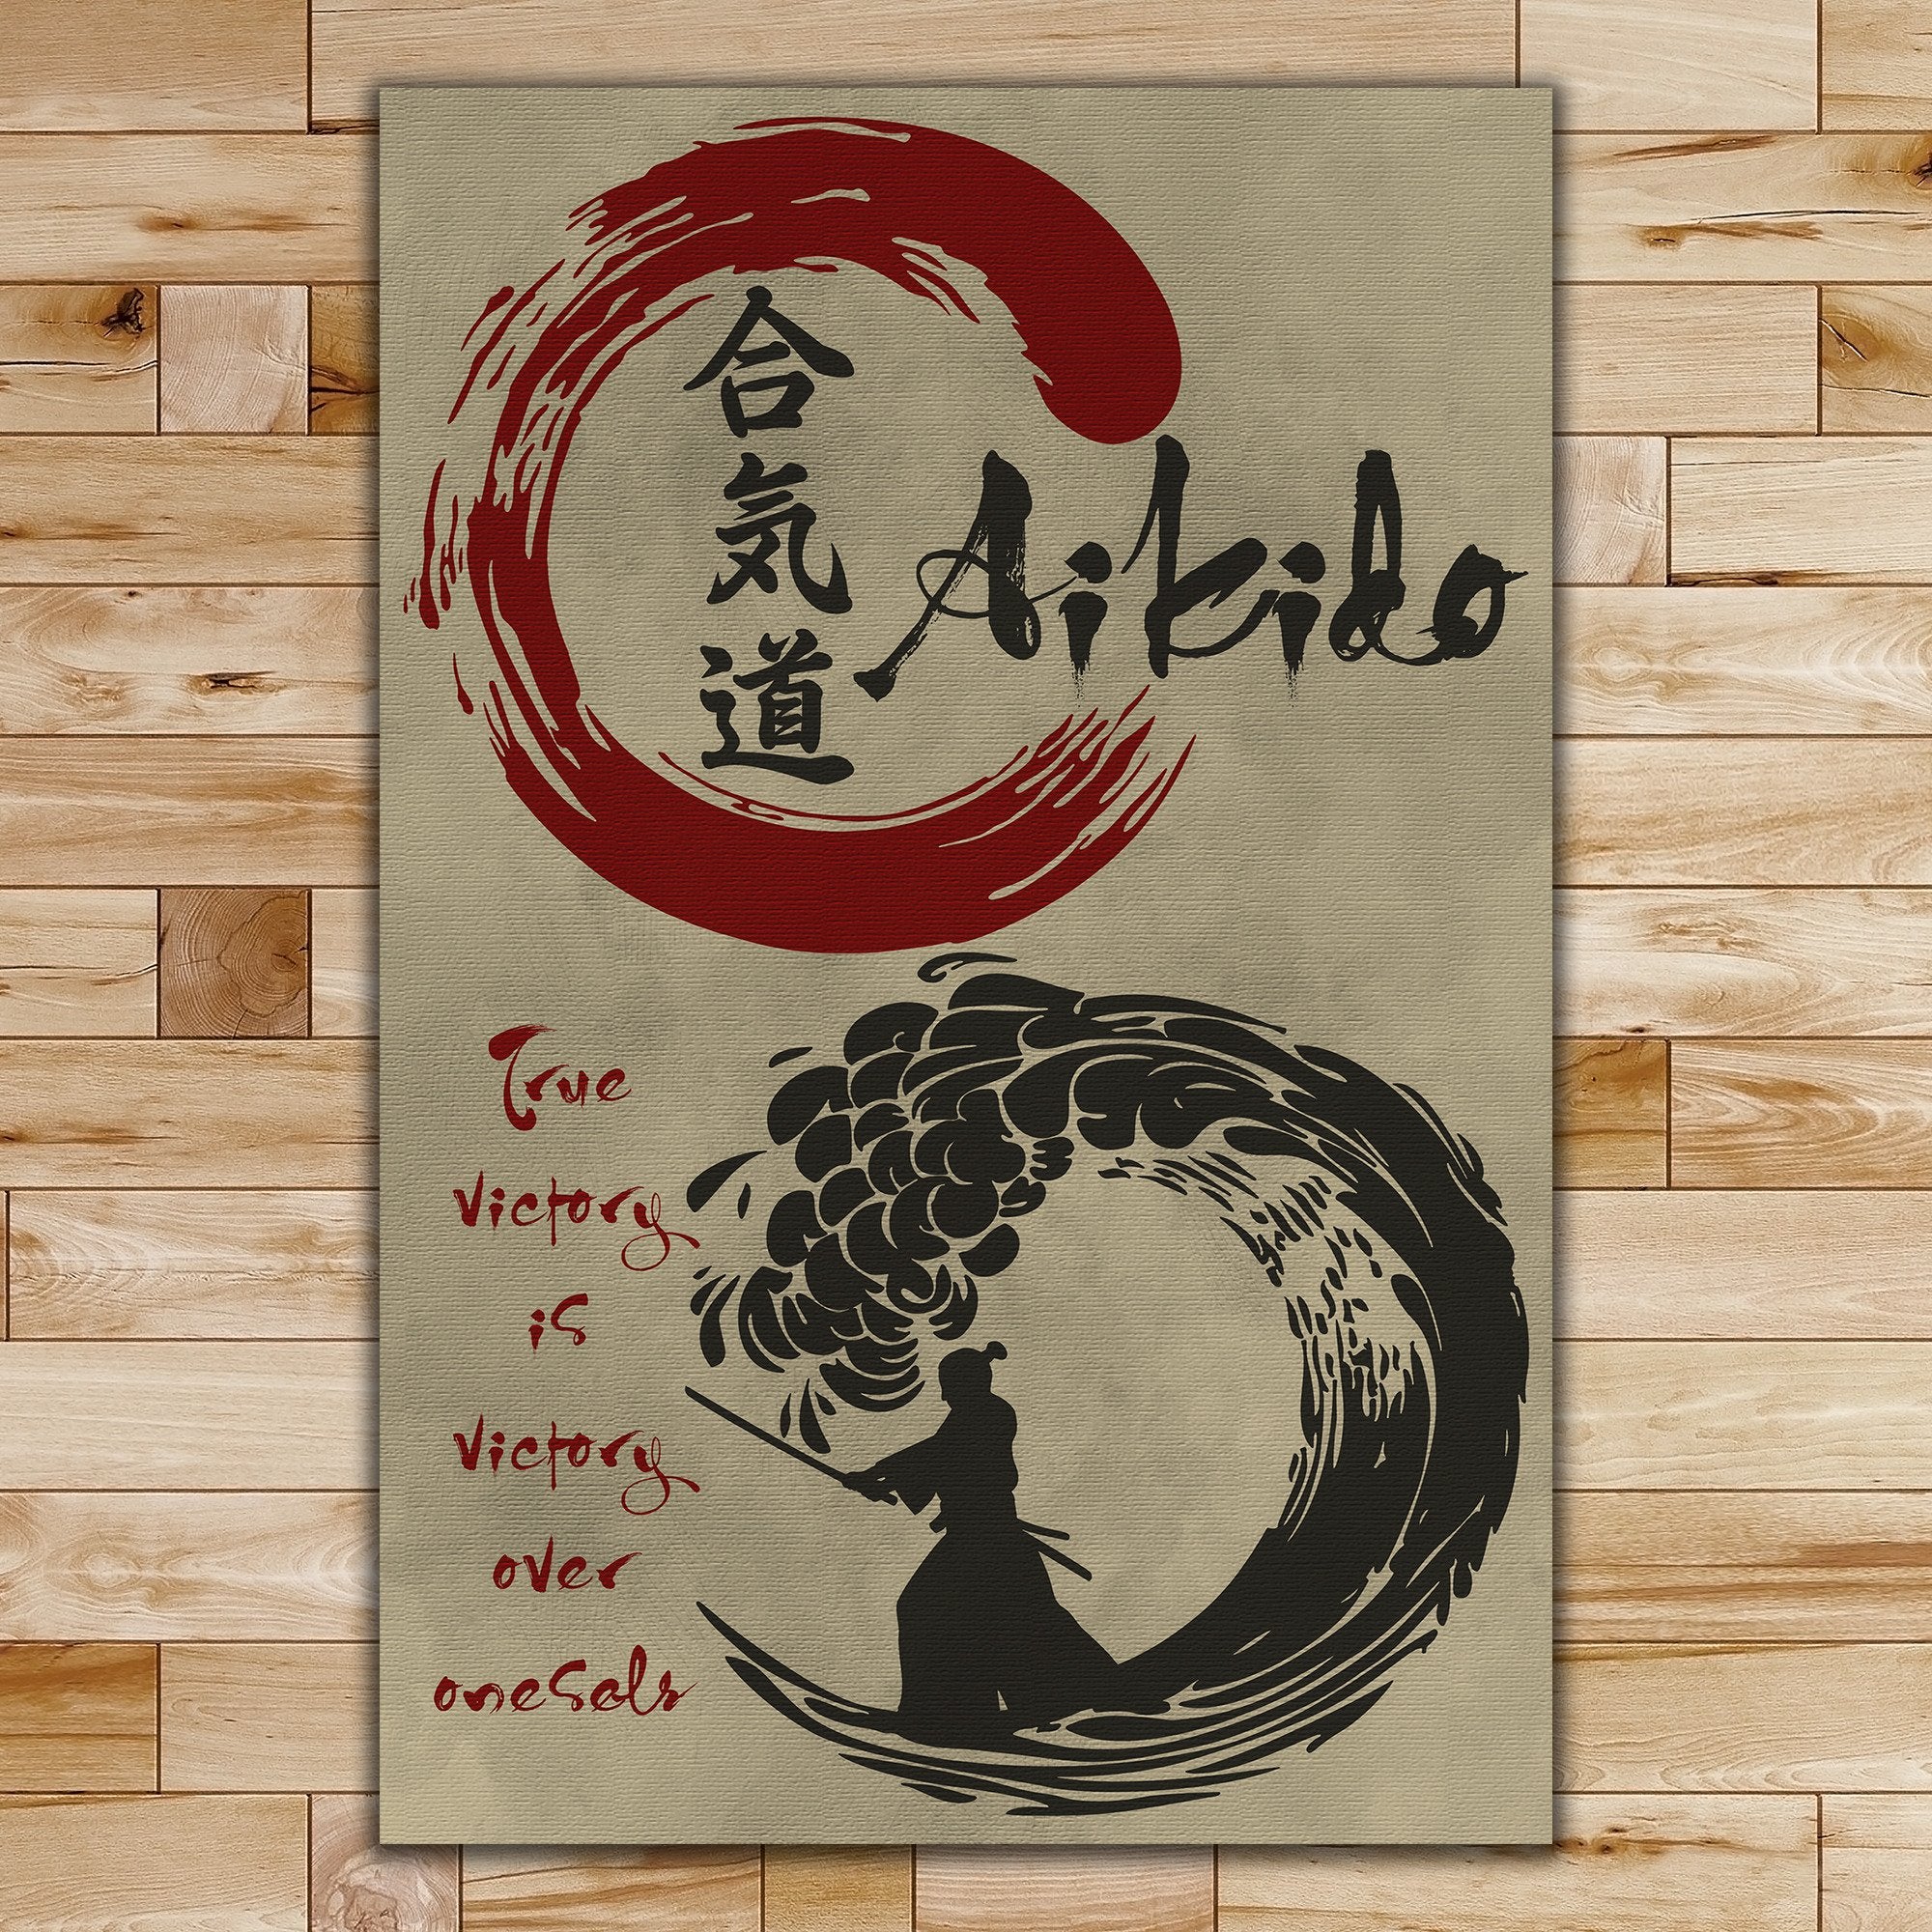 合気道
Aikido
True
victory
is
victory
over
oneself